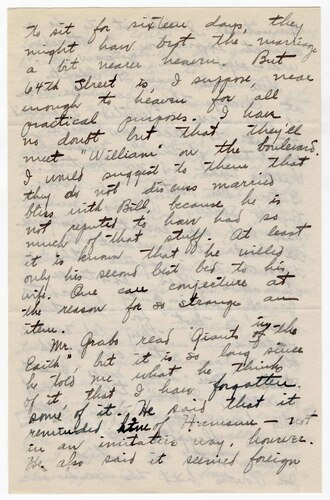 to sit for sixteen days, they
might have kept the marriage
a bit nearer heaven. But
64th Street is, I suppose, near
enough to heaven for all
practical purposes. I have
no doubt but that they'll
meet "William" on the boulevard.
I would suggest to them that
they do not discuss married
bliss with Bill, because he is
not reputed to have had so
much of that stuff. At least
it is known that he willed
only his second best bed to his
wife. One can conjecture at
the reason for so strange an
item.
Mr. Grabo read "Giants in the
Earth", but it is so long since
he told me what he thinks
of it, that I have forgotten
some of it. He said that it
reminded him of Hamsun – not
in an imitative way, however.
He also said it seemed foreign